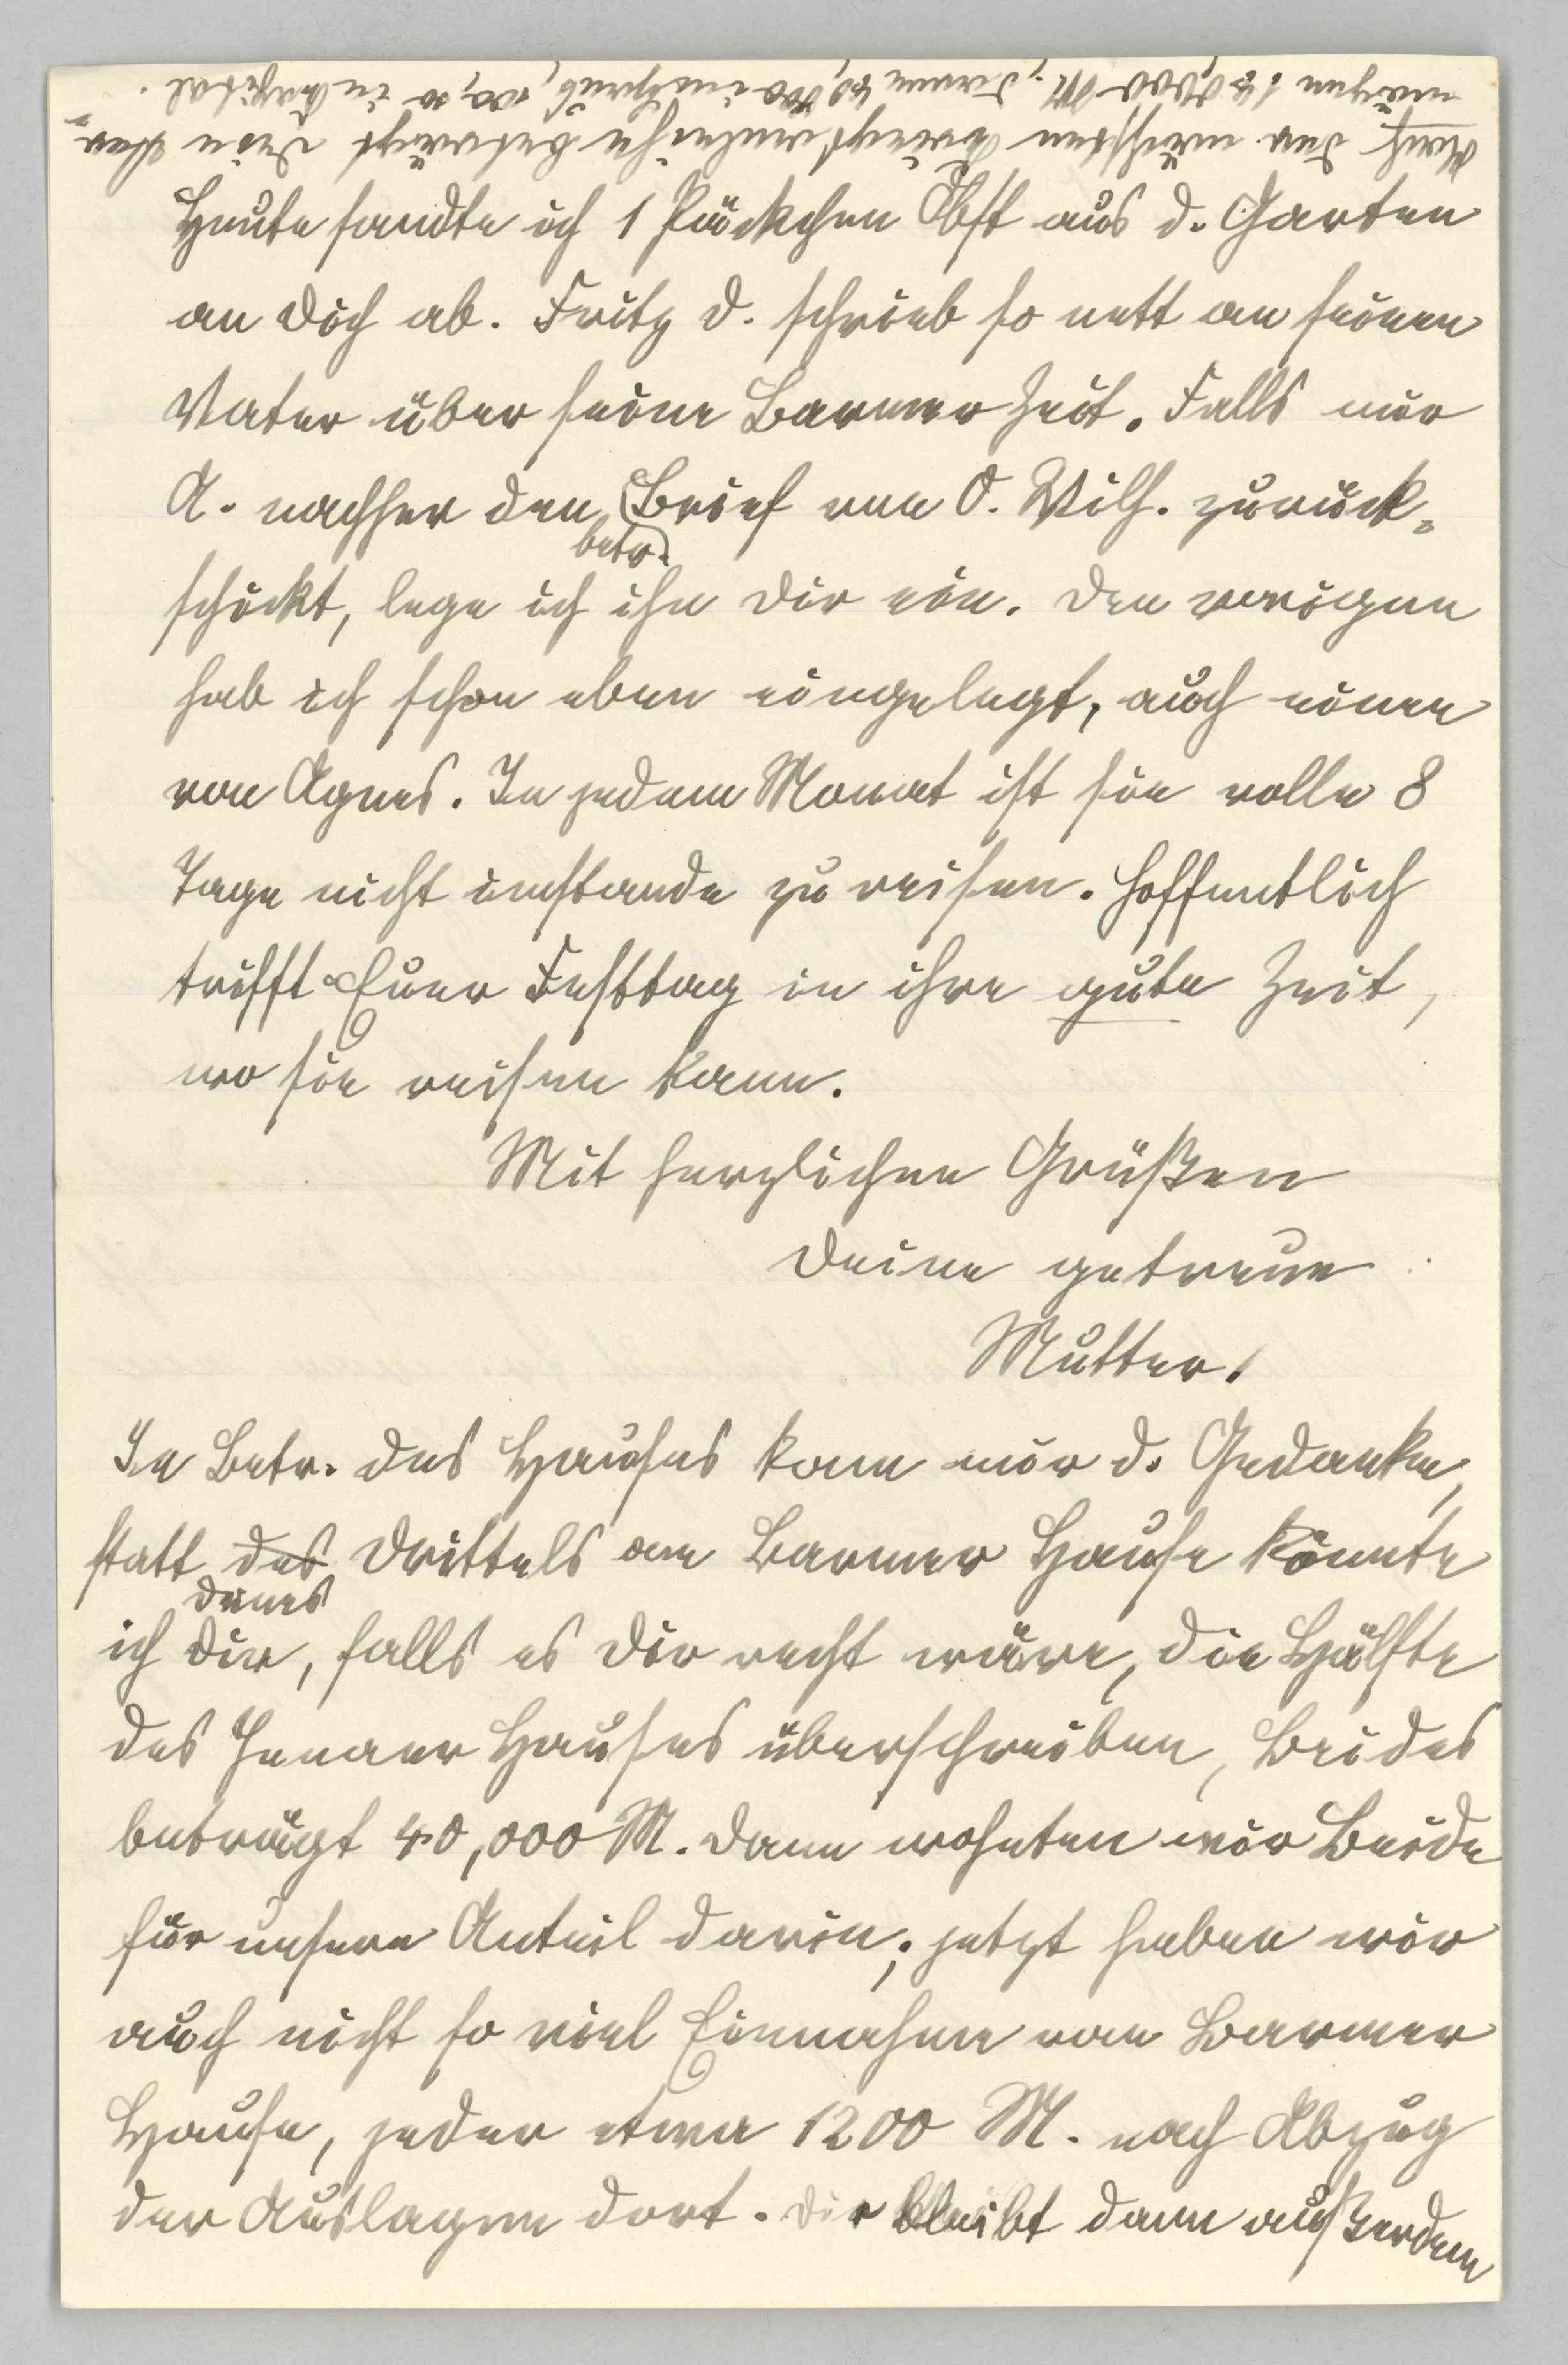 Nach der nächsten Kriegsanleihe beträgt dein Ver-
mögen 140,000 M, davon 40,000 im Haus, 100,00 in Kapital.
Heute sandte ich 1 Päckchen Obst aus d. Garten
an Dich ab. Fritz D. schrieb so nett an seinen
Vater über seine Barmer Zeit. Falls mir
A. nachher den betr. Brief von O. Wilh. zurück-
schickt, lege ich ihn Dir ein. Den vorigen
hab ich schon eben eingelegt, auch einen
von Agnes. In jedem Monat ist sie volle 8
Tage nicht imstande zu reisen. Hoffentlich
trifft Euer Festtag in ihre gute Zeit,
wo sie reisen kann.
Mit herzlichen Grüßen
Deine getreue
Mutter.
In Betr. des Hauses kam mir d. Gedanke,
statt des deines Drittels am Barmer Hause könnte
ich Dir, falls es Dir recht wäre, die Hälfte
des Jenaer Hauses überschreiben, Beides
beträgt 40,000 M. Dann wohnten wir Beide
für unsern Anteil darin; jetzt haben wir
auch nicht so viel Einnahme vom Barmer
Hause, jeder etwa 1200 M. nach Abzug
der Auslagen dort. Dir bleibt dann außerdem